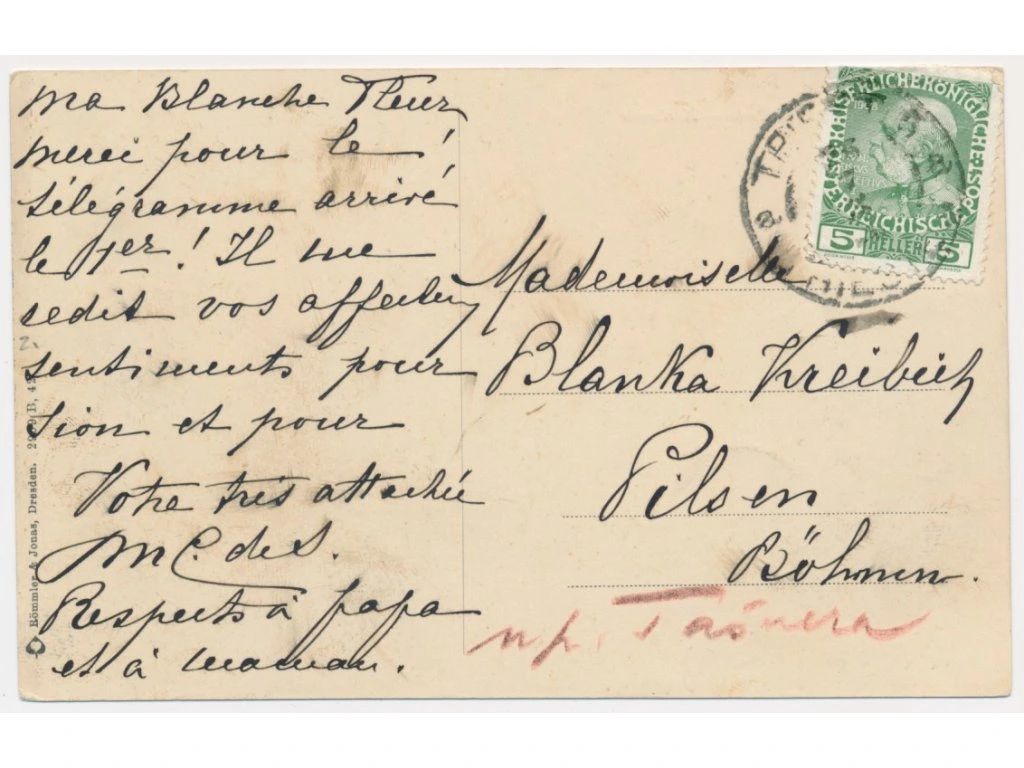 Ma Blanche Fleur
merci pour le
télégramme arrivé
le 1er! Il me
redit vos affectueux
sentiments pour
Sion et pour
Votre très attachée
M. C. de S.
Respects à papa
et à maman.
2.
Römmler & Jonas, Dresden.
KAISERLICHE KÖNIGLICHE ÖSTERREICHISCHE POST
5 HELLER 5
TRIES
Mademoiselle
Blanka Kreibich
Pilsen
Böhmen.
np.